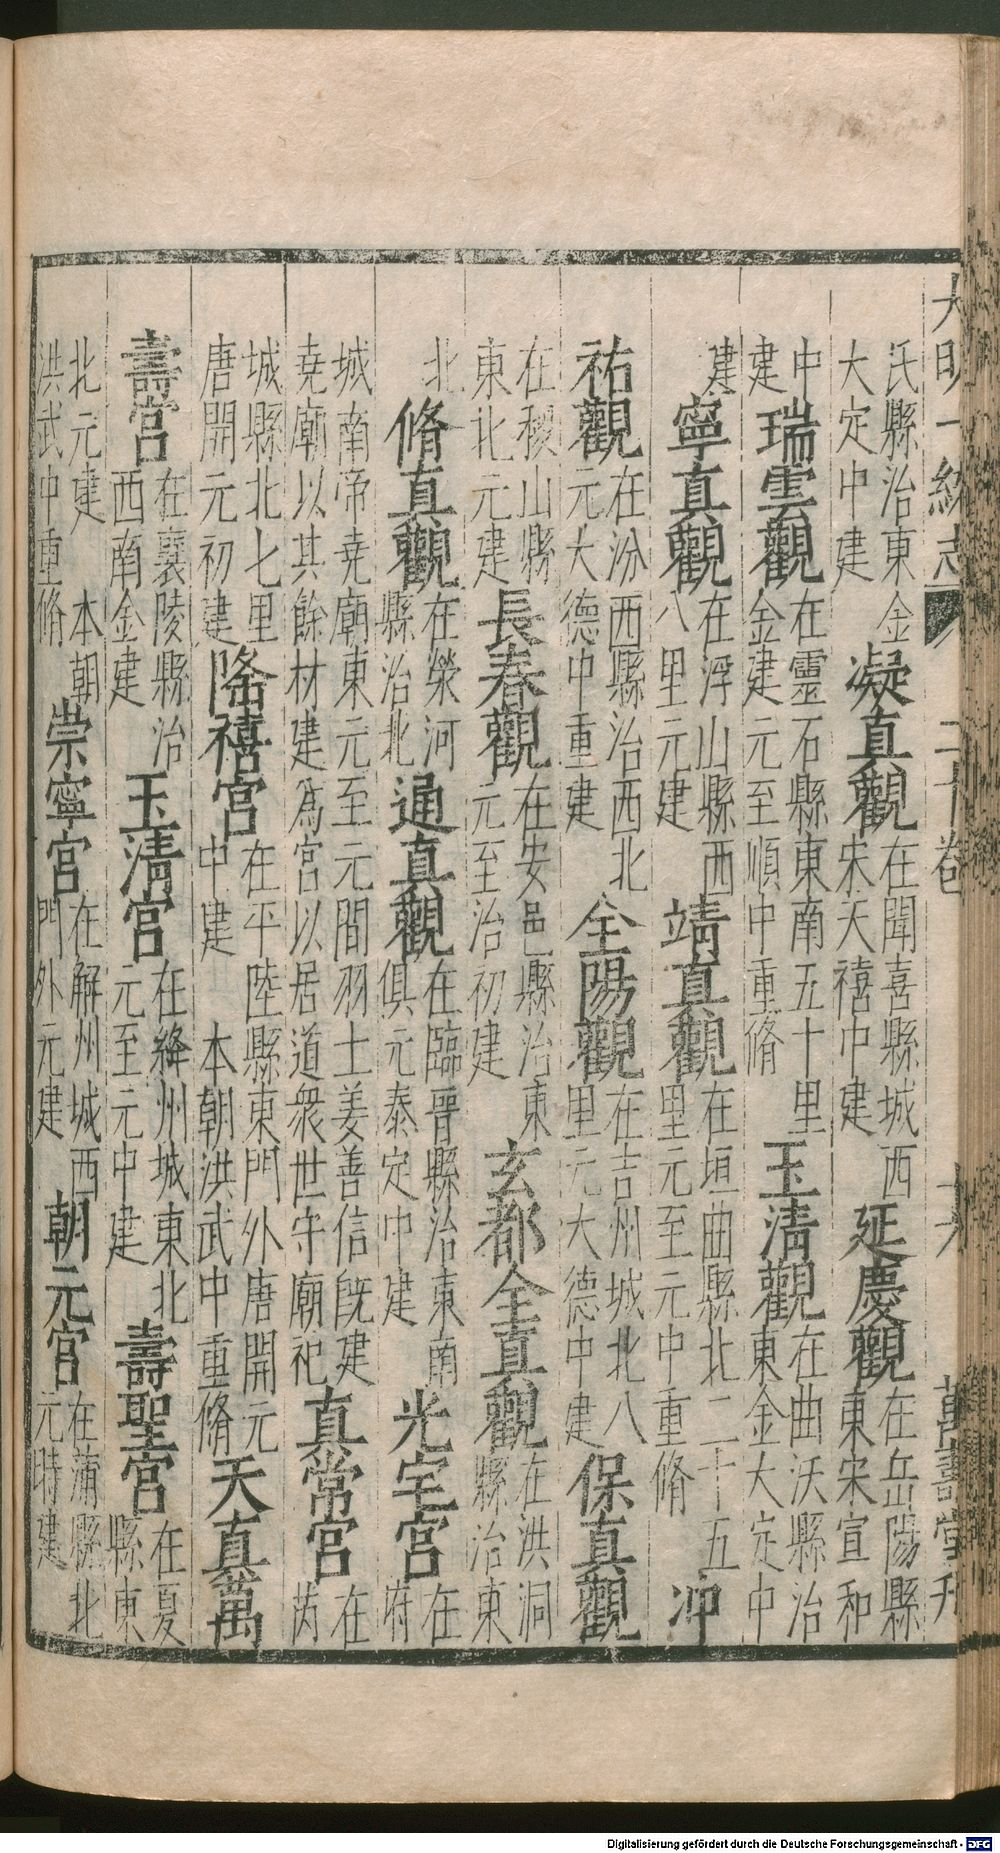 大明一統志 二十卷 十六 萬壽堂刊
氏縣治東金大定中建 凝真觀 在聞喜縣城西宋天禧中建 延慶觀 在岳陽縣東宋宣和
中建 瑞雲觀 在靈石縣東南五十里金建元至順中重脩 玉清觀 在曲沃縣治東金大定中
建 寧真觀 在浮山縣西八里元建 靖真觀 在垣曲縣北二十五里元至元中重脩 冲
祐觀 在汾西縣治西北元大德中重建 全陽觀 在吉州城北八里元大德中建 保真觀
在稷山縣東北元建 長春觀 在安邑縣治東元至治初建 玄都全真觀 在洪洞縣治東
北 脩真觀 在榮河縣治北 通真觀 在臨晉縣治東南俱元泰定中建 光宅宮 在府
城南帝堯廟東元至元間羽士姜善信既建堯廟以其餘材建為宮以居道衆世守廟祀 真常宮 在芮
城縣北七里唐開元初建 隆禧宮 在平陸縣東門外唐開元中建 本朝洪武中重脩 天真萬
壽宮 在襄陵縣治西南金建 玉清宮 在絳州城東北元至元中建 壽聖宮 在夏縣東
北元建 本朝洪武中重脩 崇寧宮 在解州城西門外元建 朝元宮 在蒲縣北元時建
Digitalisierung gefördert durch die Deutsche Forschungsgemeinschaft - DFG